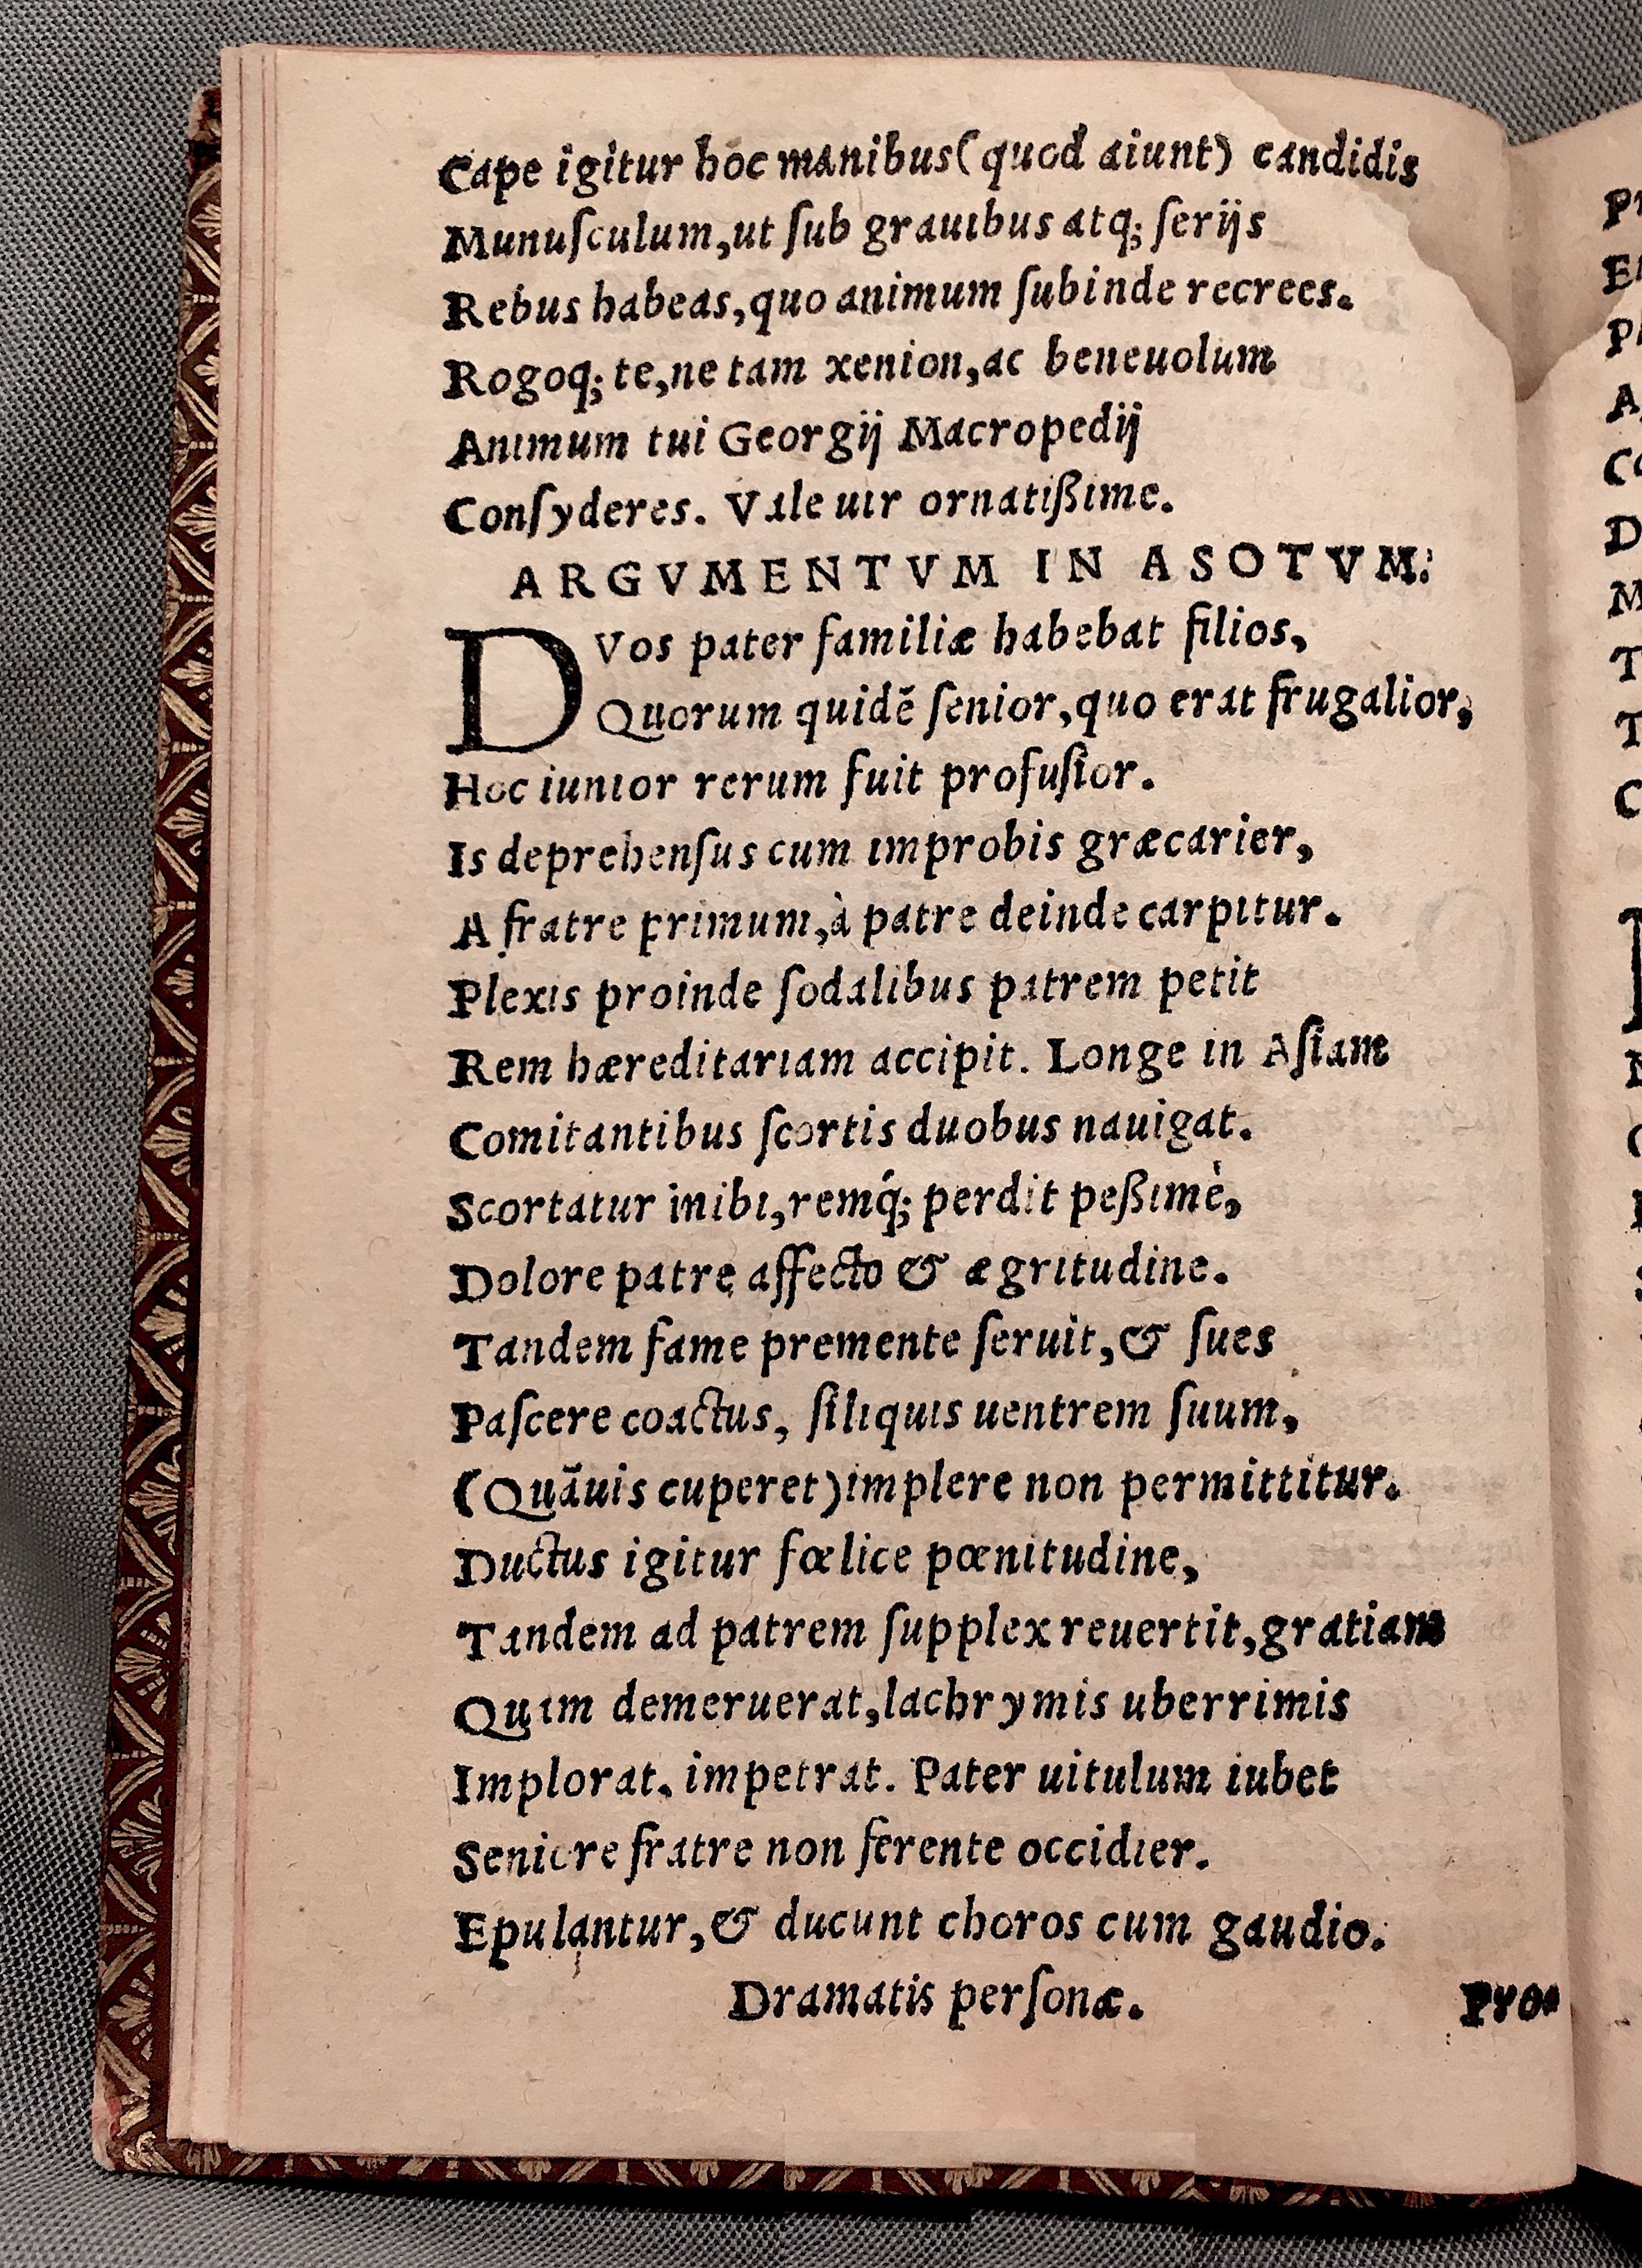 Cape igitur hoc manibus (quod aiunt) candidis
Munuſculum, ut ſub grauibus atq; ſerijs
Rebus habeas, quo animum ſubinde recrees.
Rogoq; te, ne tam xenion, ac beneuolum
Animum tui Georgij Macropedij
Conſyderes. Vale uir ornatißime.
ARGVMENTVM IN ASOTVM.
DVos pater familiæ habebat filios,
Quorum quidẽ ſenior, quo erat frugalior,
Hoc iunior rerum fuit profuſior.
Is deprehenſus cum improbis græcarier,
A fratre primum, à patre deinde carpitur.
Plexis proinde ſodalibus patrem petit
Rem hæreditariam accipit. Longe in Aſiam
Comitantibus ſcortis duobus nauigat.
Scortatur inibi, remq́; perdit peßimè,
Dolore patre affecto & ægritudine.
Tandem fame premente ſeruit, & ſues
Paſcere coactus, ſiliquis uentrem ſuum,
(Quãuis cuperet) implere non permittitur.
Ductus igitur fœlice pœnitudine,
Tandem ad patrem ſupplex reuertit, gratiam
Quam demeruerat, lachrymis uberrimis
Implorat. impetrat. Pater uitulum iubet
Seniore fratre non ferente occidier.
Epulantur, & ducunt choros cum gaudio.
Dramatis perſonæ.
Pro⸗